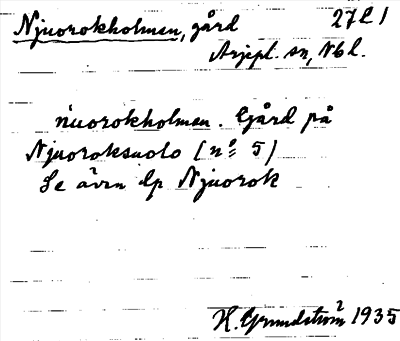 Njuorokholmen, gård 27 L 1
Arjepl. sn, Nbl.
n̓uorokholmen. Gård på
Njuoroksuolo (nº 5)
Se även lp Njuorok
H. Grundström 1935